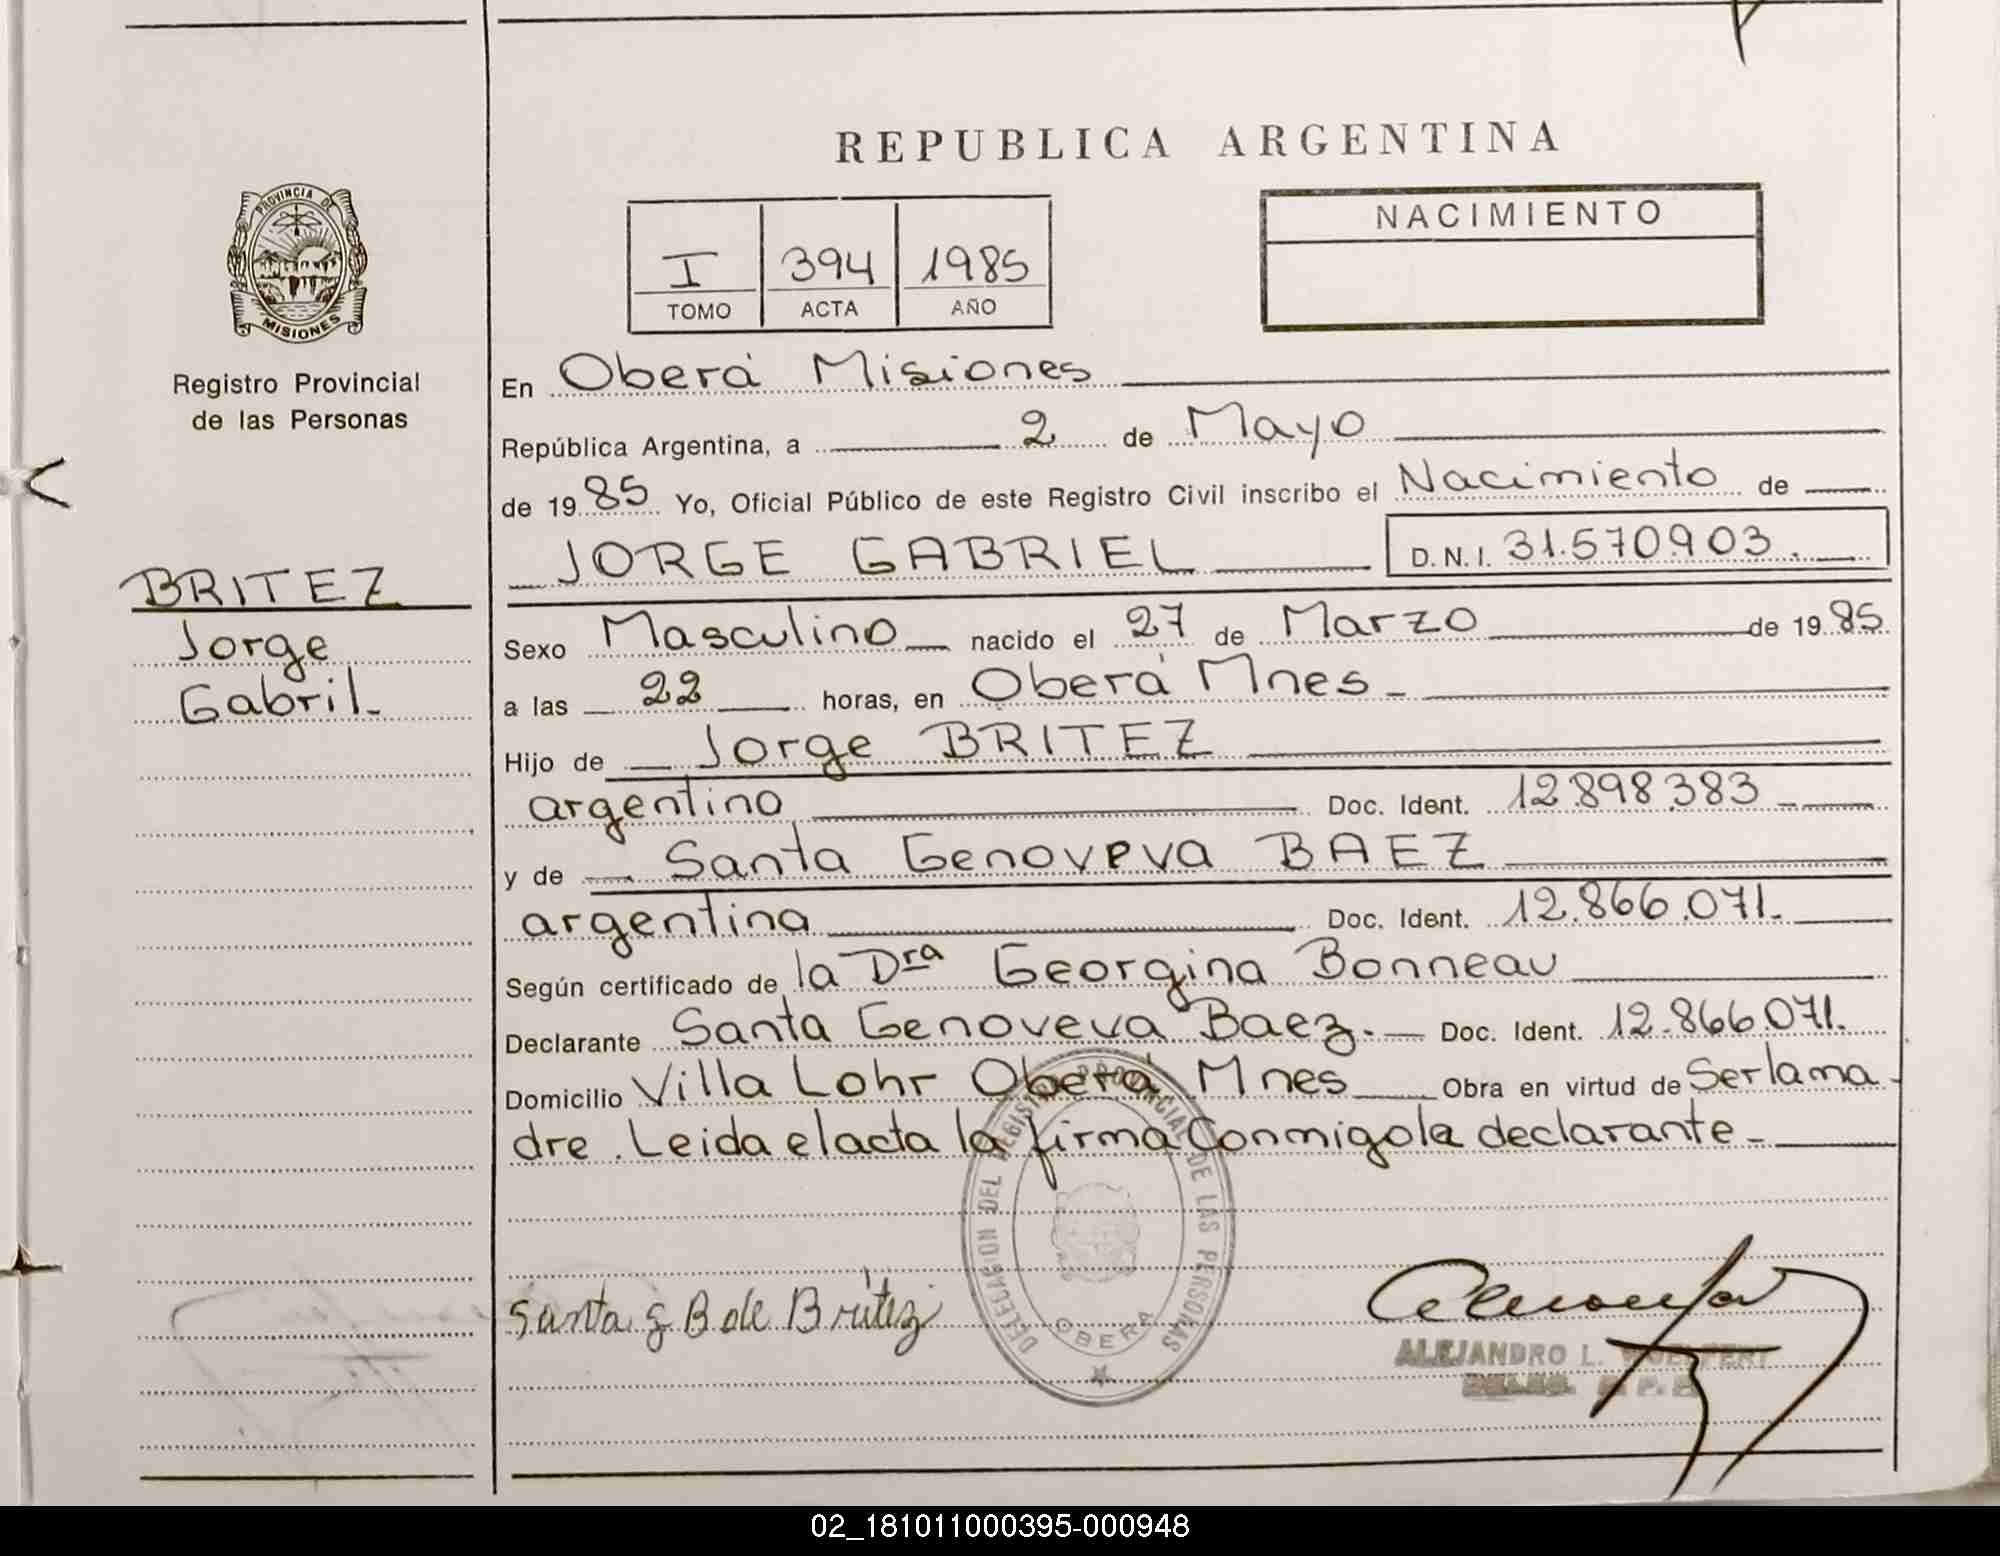 REPUBLICA ARGENTINA
PROVINCIA DE
MISIONES
Registro Provincial
de las Personas
I 394 1985
TOMO ACTA AÑO
NACIMIENTO
En Oberá Misiones
República Argentina, a 2 de Mayo
de 1985 Yo, Oficial Público de este Registro Civil inscribo el Nacimiento de
JORGE GABRIEL D.N.I. 31.570.903.
BRITEZ
Jorge
Gabril.
Sexo Masculino nacido el 27 de Marzo de 1985
a las 22 horas, en Oberá Mnes -
Hijo de Jorge BRITEZ
argentino Doc. Ident. 12.898.383
y de Santa Genoveva BAEZ
argentina Doc. Ident. 12.866.071.
Según certificado de la Dra Georgina Bonneau
Declarante Santa Genoveva Baez. Doc. Ident. 12.866.071.
Domicilio Villa Lohr Oberá Mnes Obra en virtud de Ser la ma
dre. Leida el acta la firma Conmigo la declarante -
DELEGACION DEL REGISTRO PROVINCIAL DE LAS PERSONAS
OBERA
Santa G B de Britez
ALEJANDRO L.
02_181011000395-000948